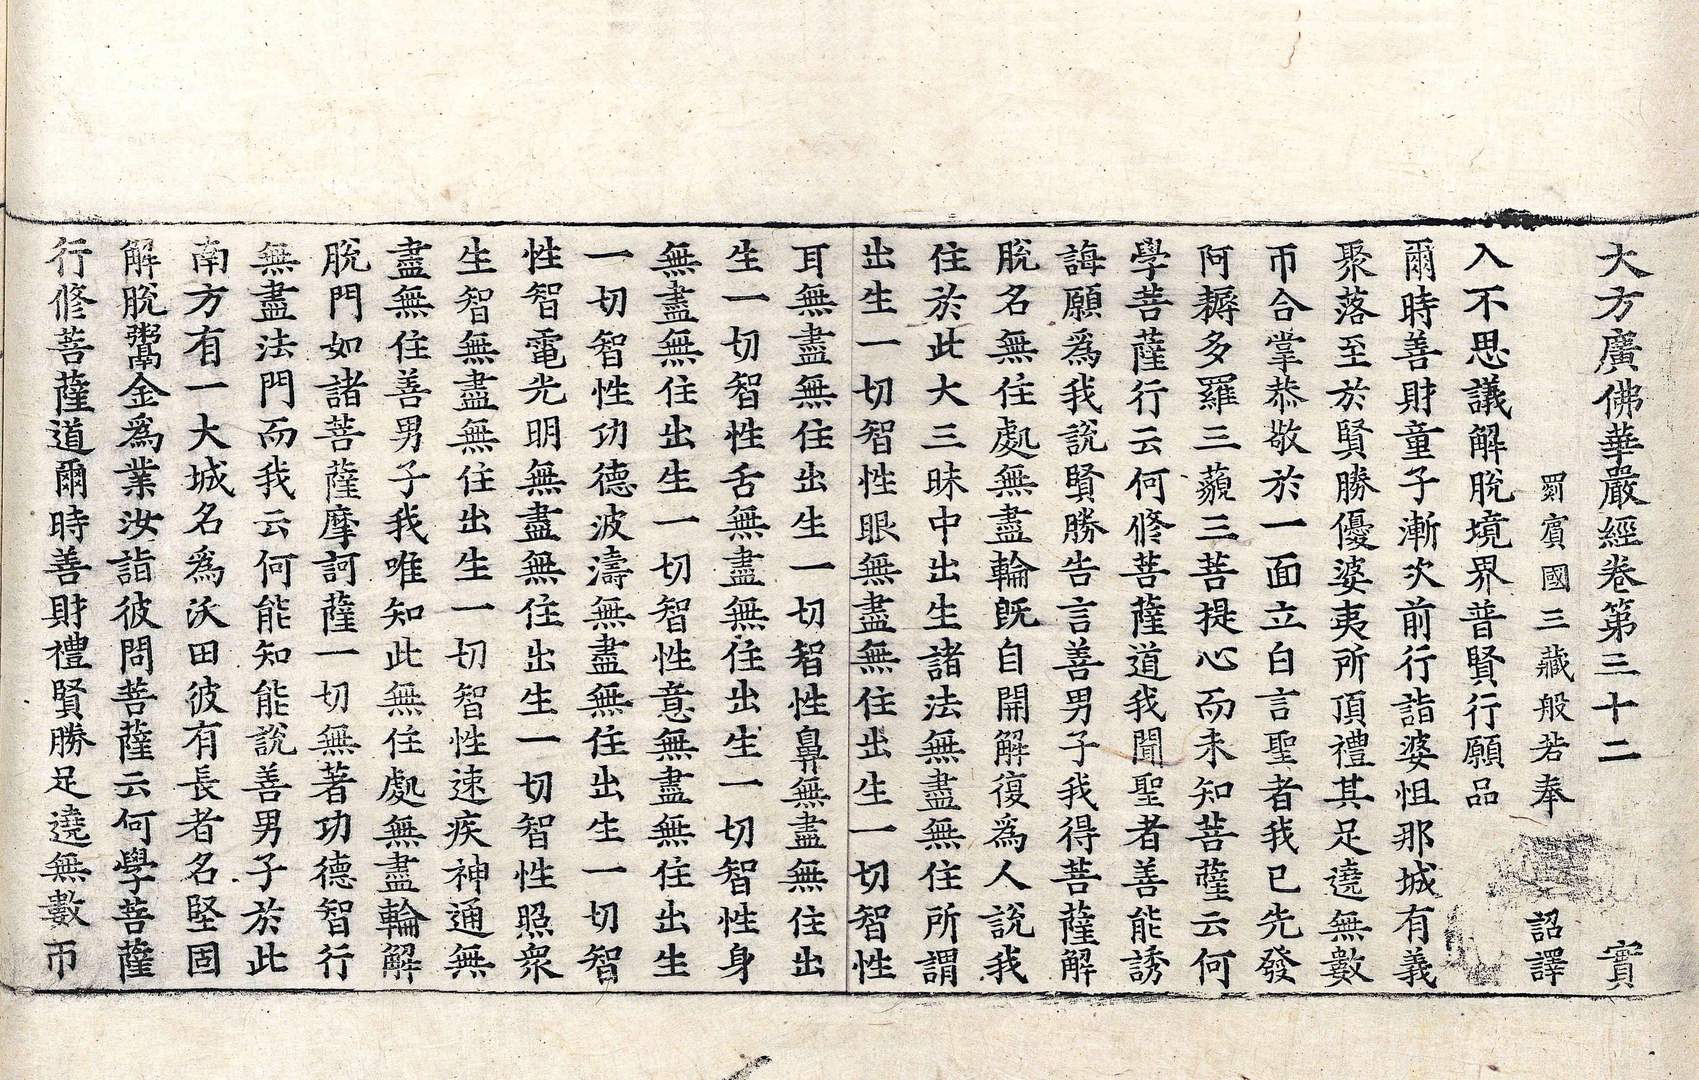 大方廣佛華嚴經卷第三十二 實
罽賓國三藏般若奉 詔譯
入不思議解脫境界普賢行願品
爾時善財童子漸次前行詣婆怛那城有義
聚落至於賢勝優婆夷所頂禮其足遶無數
帀合掌恭敬於一面立白言聖者我已先發
阿耨多羅三藐三菩提心而未知菩薩云何
學菩薩行云何修菩薩道我聞聖者善能誘
誨願爲我說賢勝告言善男子我得菩薩解
脫名無住處無盡輪旣自開解復爲人說我
住於此大三昧中出生諸法無盡無住所謂
出生一切智性眼無盡無住出生一切智性
耳無盡無住出生一切智性鼻無盡無住出
生一切智性舌無盡無住出生一切智性身
無盡無住出生一切智性意無盡無住出生
一切智性功德波濤無盡無住出生一切智
性智電光明無盡無住出生一切智性照衆
生智無盡無住出生一切智性速疾神通無
盡無住善男子我唯知此無住處無盡輪解
脫門如諸菩薩摩訶薩一切無著功德智行
無盡法門而我云何能知能說善男子於此
南方有一大城名爲沃田彼有長者名堅固
解脫鬻金爲業汝詣彼問菩薩云何學菩薩
行修菩薩道爾時善財禮賢勝足遶無數帀